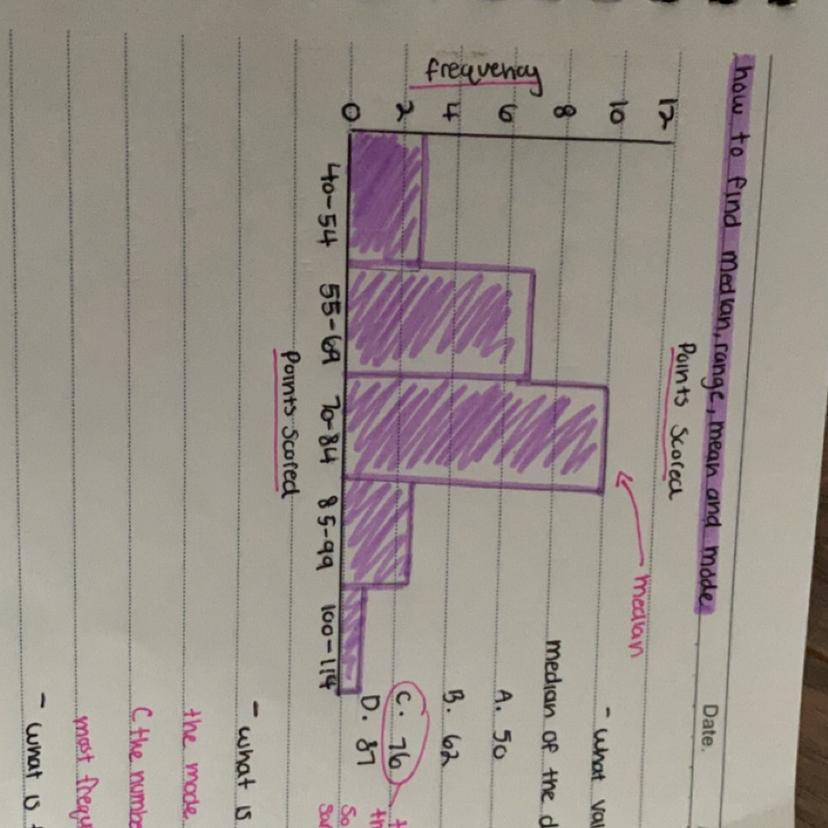 how to find median, range, mean and mode
Date.
Points scored
12
10
8
6
4
2
0
frequency
40-54
55-69
70-84
85-99
100-114
Points scored
median
- what
median of the
A. 50
B. 62
C. 76
D. 87
So
- what is
the mode
(the
most
- what is